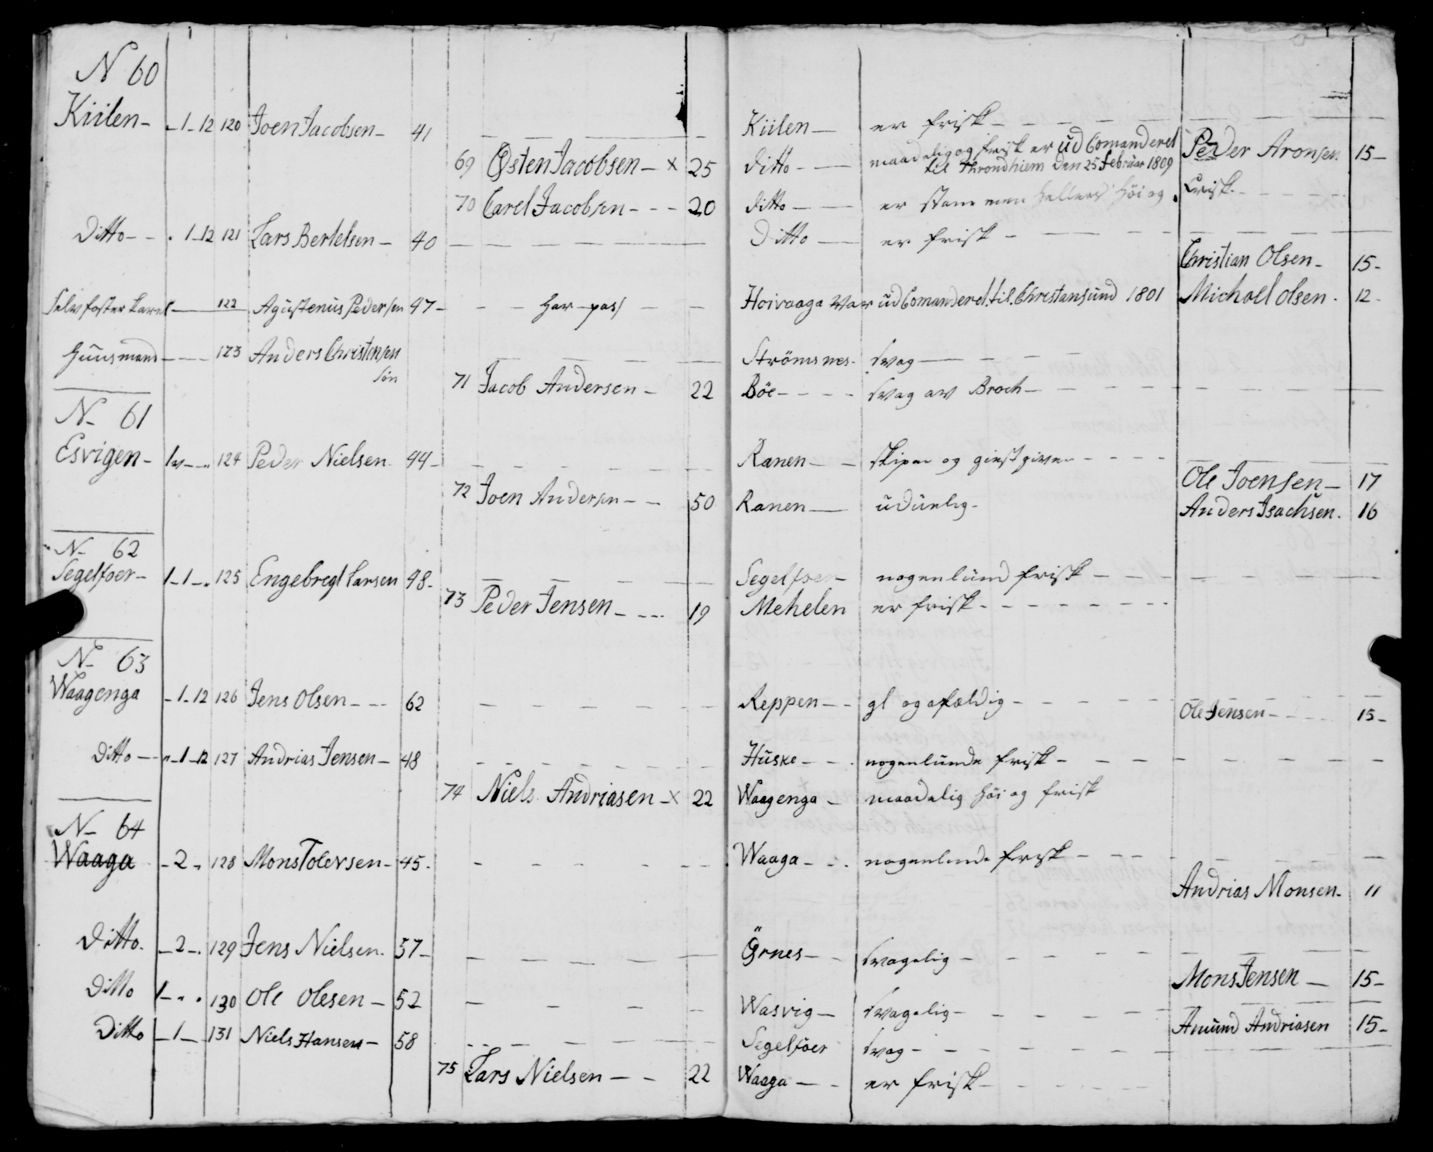 N 60
Kiilen - 1 - 12 120 Joen Jacobsen - 41 Kiilen - er frisk
69 Østen Jacobsen - x 25 ditto - maadelig og frisk er ud Comanderet Peder Aronsen 15 -
til Throndhiem den 25 Februar 1809
70 Carel Jacobsen - 20 ditto - er frisk
Ditto - 1 - 12 121 Lars Bertelsen - 40 Ditto - er frisk -
Christian Olsen - 15 -
122 Agustenus Pedersen 47 - har pas Hoivaaga var ud Comanderet til Christansund 1801 Michael Olsen - 12 -
Huusmand - 123 Anders Christensen Strömsnes - svag -
Sön
71 Jacob Andersen - 22 Böe - svag av Brock -
N - 61
Esvigen - 124 Peder Nielsen 44 - Ranen - skiper og giestgiver -
Ole Joensen - 17
72 Joen Andersen - 50 Ranen - uduelig -
Anders Isachsen - 16
N - 62
Segelfoer - 1 - 1 - 125 Engebregt Larsen 48 - Segelfoer - nogenlund frisk -
73 Peder Jensen - 19 Mehelen er frisk -
N - 63
Waagenga - 1 - 12 126 Jens Olsen - 62 Reppen - gl og afældig - Ole Jensen - 15 -
Ditto - 1 - 12 127 Andrias Jensen - 48 Huske - nogenlunde frisk -
74 Niels Andriasen - x 22 Waagenga - maadelig höi og frisk
N - 64
Waaga - 2 - 128 Mons Tolersen - 45 - Waaga - nogenlunde frisk -
Andrias Monsen - 11
Ditto - 2 - 129 Jens Nielsen - 57 - Örnes - svagelig -
Mons Jensen - 15 -
Ditto 1 - 130 Ole Olesen - 52 Wasvig - svagelig -
Amund Andriasen 15 -
Ditto - 1 - 131 Niels Hansen - 58 Segelfoer svag -
75 Lars Nielsen - 22 Waaga - er frisk -